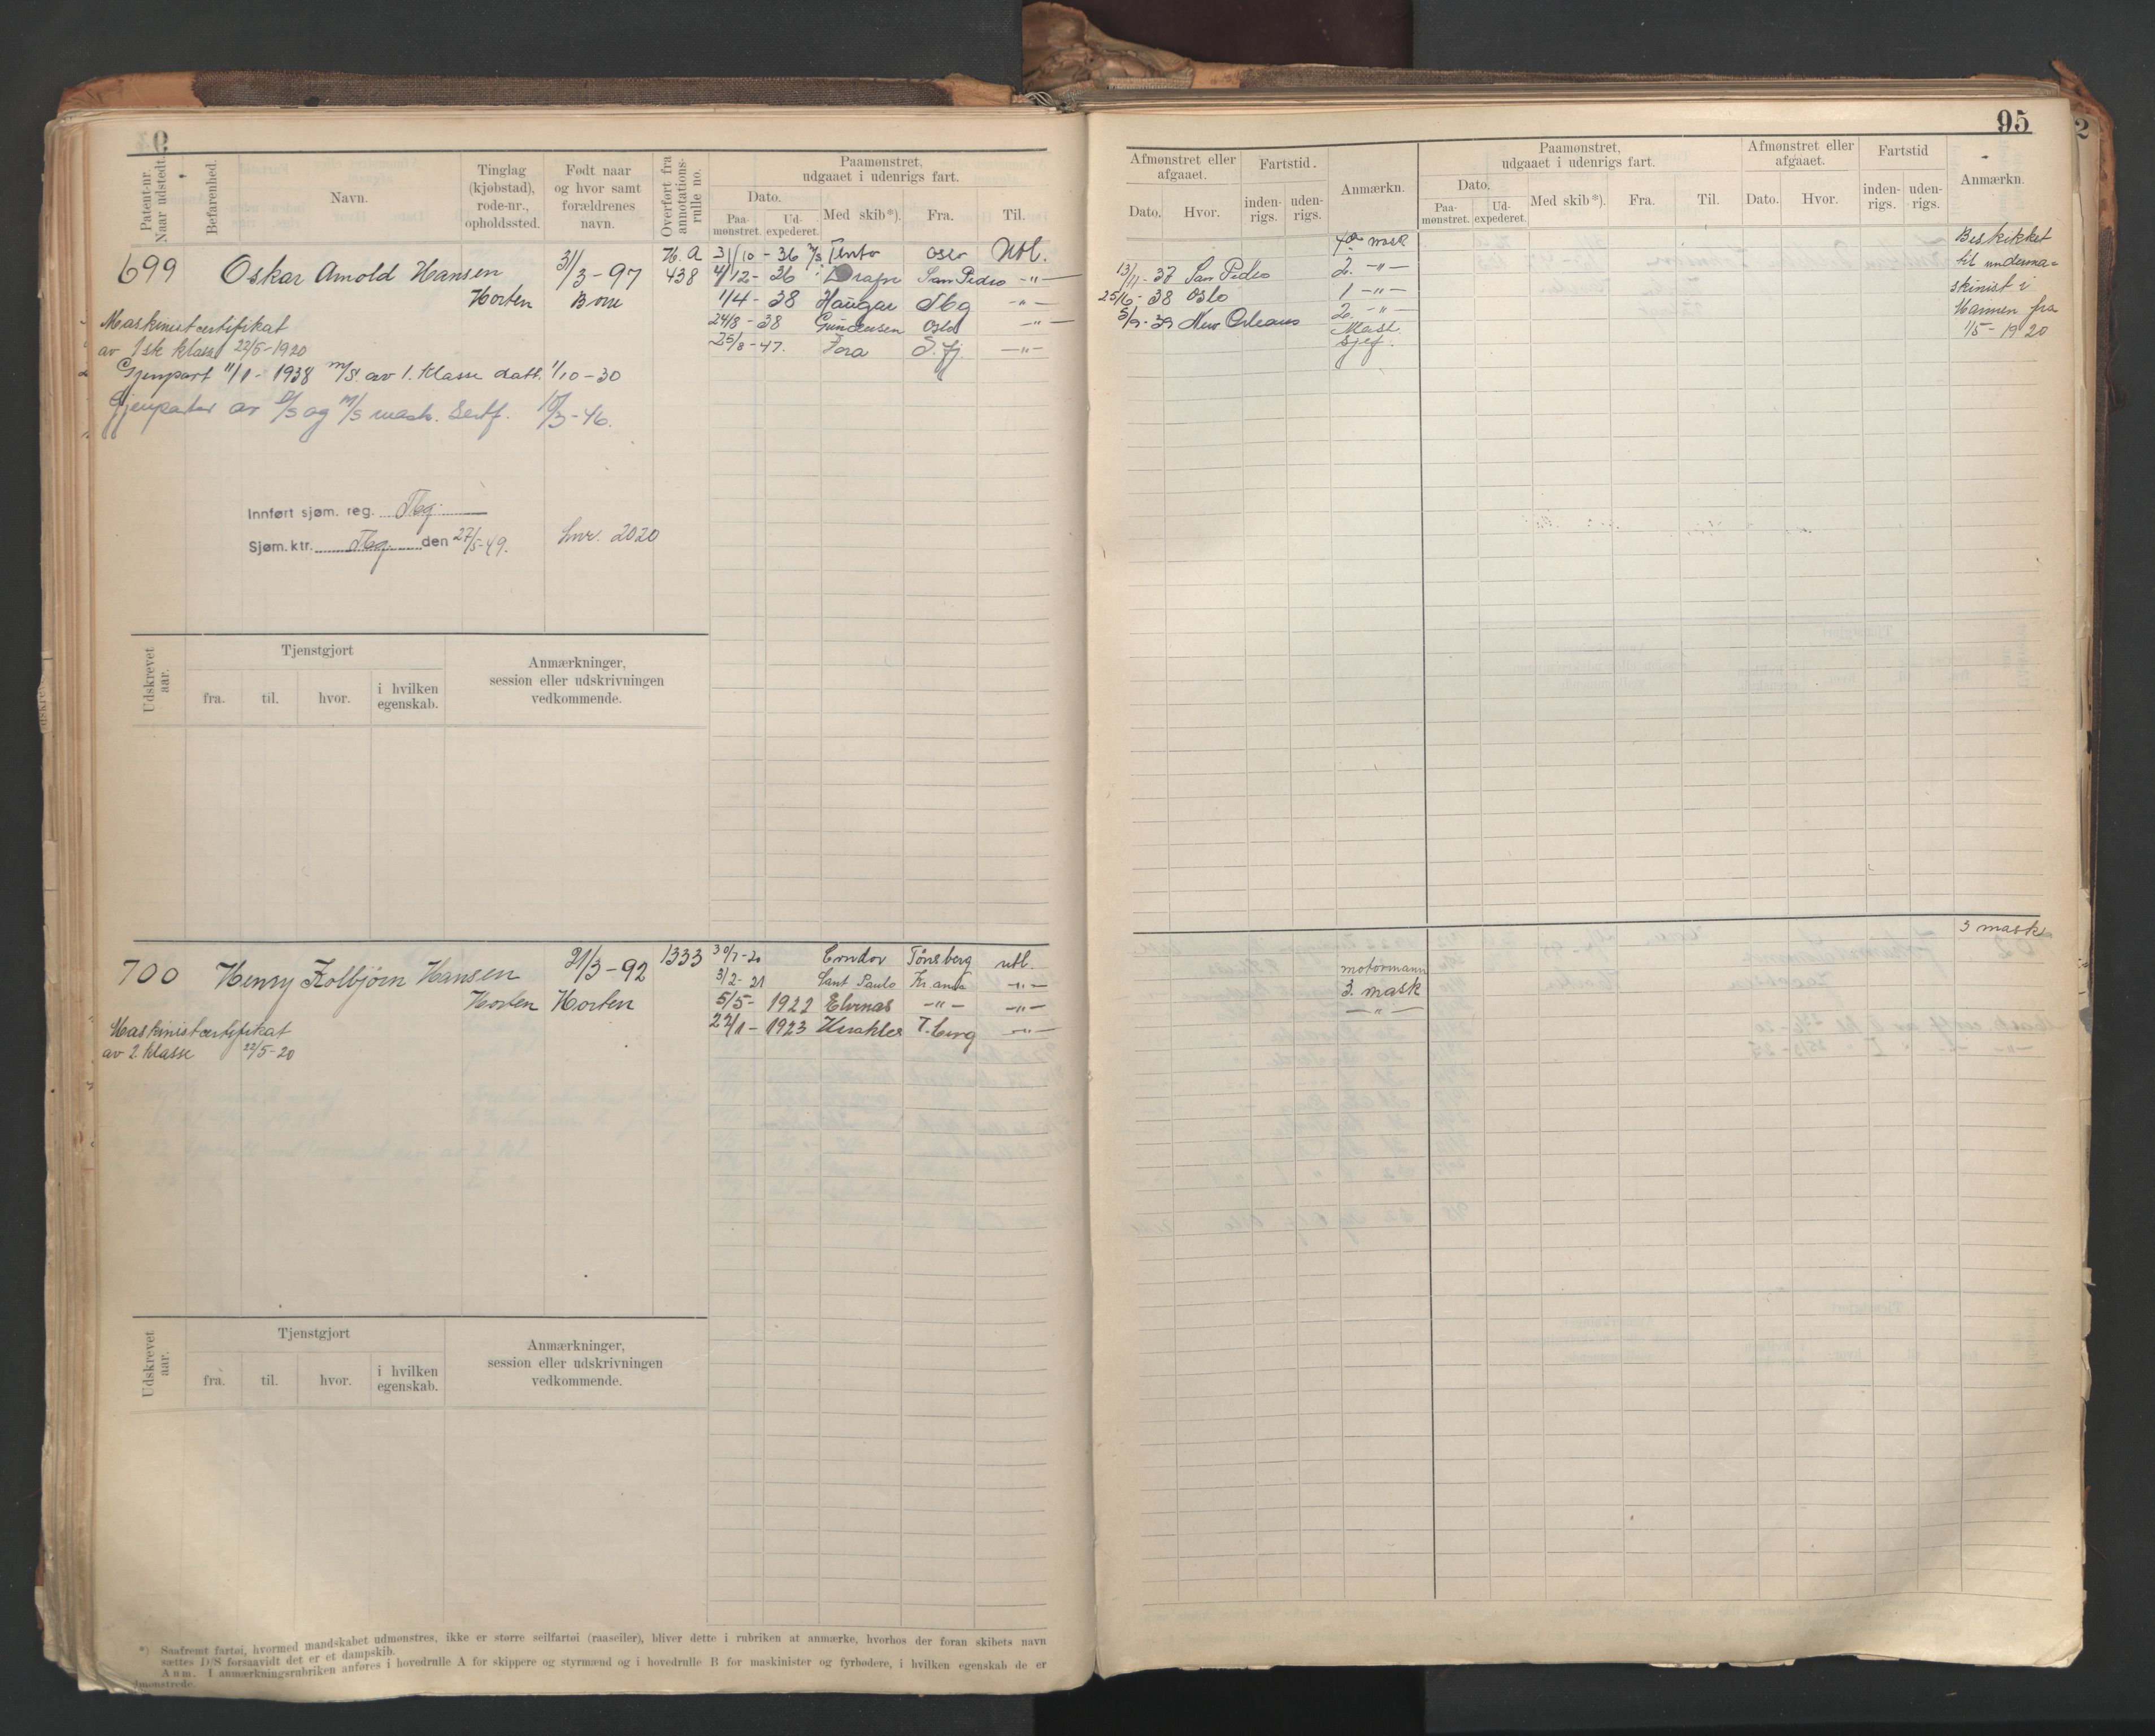 95
Patent-nr. Naar udstedt.
Befarenhed.
Navn.
Tinglag (kjøbstad), rode-nr., opholdssted.
Født naar og hvor samt forældrenes navn.
Overført fra annotations-rulle no.
Paamønstret, udgaaet i udenrigs fart.
Dato.
Paa-mønstret. Ud-expederet.
Med skib*).
Fra.
Til.
Afmønstret eller afgaaet.
Dato. Hvor.
Fartstid.
inden-rigs. uden-rigs.
Anmærkn.
Paamønstret, udgaaet i udenrigs fart.
Dato.
Paa-mønstret. Ud-expederet.
Med skib*).
Fra.
Til.
Afmønstret eller afgaaet.
Dato. Hvor.
Fartstid
inden-rigs. uden-rigs.
Anmærkn.
699 Oskar Arnold Hansen 31/3-97 H. A 438
Horten Borre
Maskinistcertifikat
av 1sk klasse 22/5-1920
Gjenpart 11/1-1938 m/s. av 1. klasse datt. 1/10-30
Gjenparter av D/S og M/S mask. Sertf. 18/3-46.
Innført sjøm. reg. Tbg.
Sjøm.ktr. Tbg. den 27/5-49. Lnr. 2020
31/10-36 M/S Tento Oslo Utl. 4de mask
4/12-36 San Pedro -"- 13/11-37 San Pedro 2. -"-
1/4-38 Haugar Tbg -"- 25/6-38 Oslo 1 -"-
24/8-38 Gundersen Oslo -"- 5/9-39 New Orleans 2. -"-
25/8-47. Tora S.fj. -"- Mask. Sjef.
Beskikket
til underma=
skinist i
Marinen fra
1/5-1920
Udskrevet aar.
Tjenstgjort
fra. til. hvor. i hvilken egenskab.
Anmærkninger, session eller udskrivningen vedkommende.
700 Henry Kolbjørn Hansen 21/3-92 1333
Horten Horten
Maskinistcertifikat
av 2. klasse 22/5-20
30/7-20 Tønsberg utl.
3/2-21 Sant Paulo Kr.and. -"- motormann
5/5-1922 Elvenas -"- -"- 3. mask
22/1-1923 Herakles T.berg -"- -"-
3 mask
Udskrevet aar.
Tjenstgjort
fra. til. hvor. i hvilken egenskab.
Anmærkninger, session eller udskrivningen vedkommende.
*) Saafremt fartøi, hvormed mandskabet udmønstres, ikke er større seilfartøi (raaseiler), bliver dette i rubriken at anmærke, hvorhos der foran skibets navn
sættes D/S forsaavidt det er et dampskib.
Anm. I anmærkningsrubriken anføres i hovedrulle A for skippere og styrmænd og i hovedrulle B for maskinister og fyrbødere, i hvilken egenskab de er
dmønstrede.